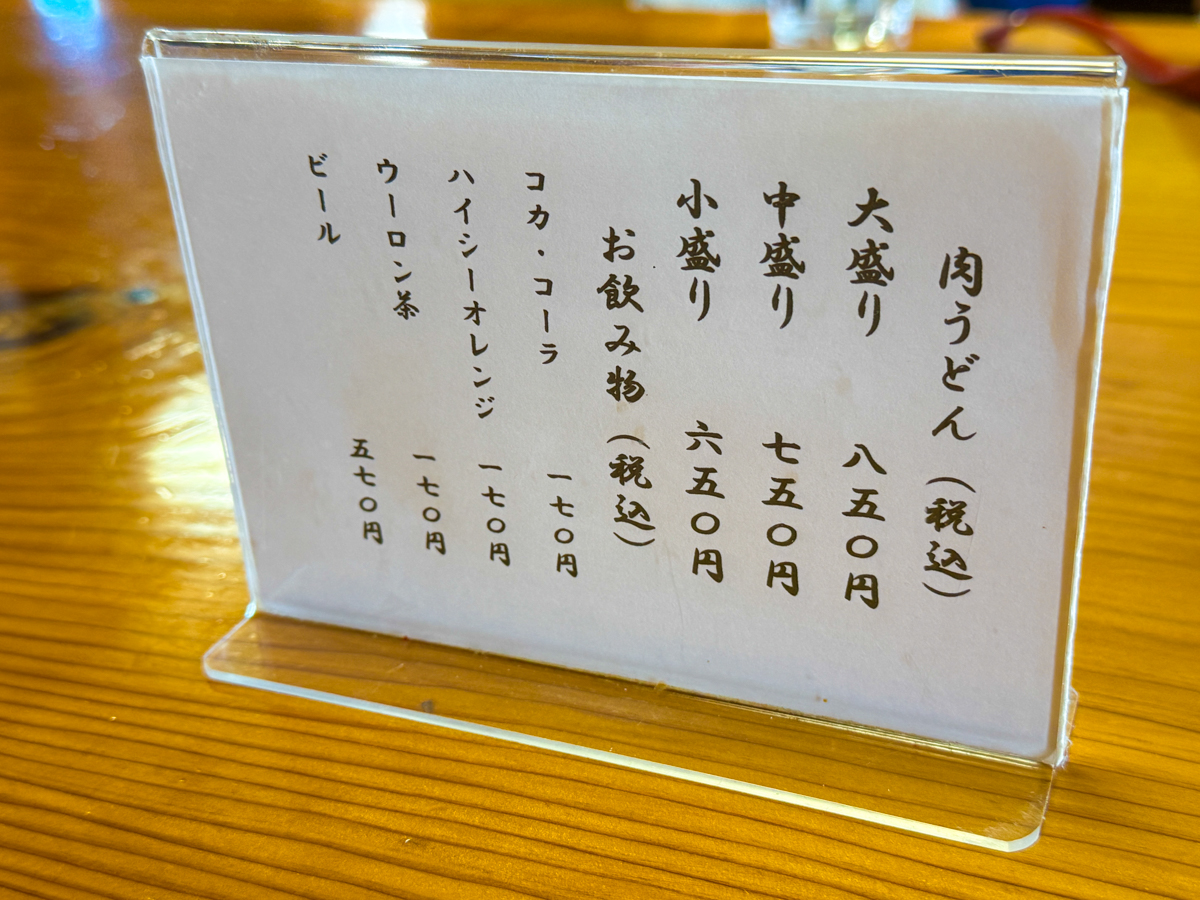 肉うどん（税込）
大盛り 八五〇円
中盛り 七五〇円
小盛り 六五〇円
お飲み物（税込）
コカ・コーラ 一七〇円
ハイシーオレンジ 一七〇円
ウーロン茶 一七〇円
ビール 五七〇円